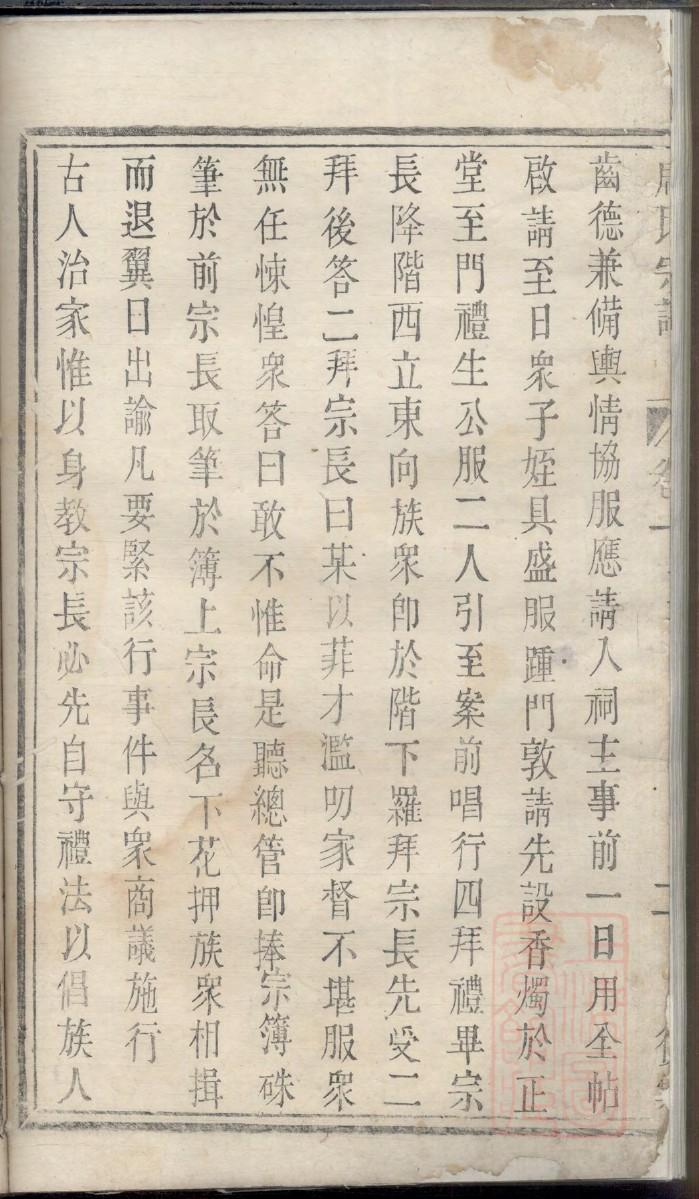 氏宗譜 卷一 二
齒德兼備輿情協服應請入祠主事前一日用全帖
啟請至日衆子姪具盛服踵門敦請先設香燭於正
堂至門禮生公服二人引至案前唱行四拜禮畢宗
長降階西立東向族衆即於階下羅拜宗長先受二
拜後答二拜宗長曰某以菲才濫叨家督不堪服衆
無任悚惶衆答曰敢不惟命是聽總管即捧宗簿硃
筆於前宗長取筆於簿上宗長名下花押族衆相揖
而退翼日出諭凡要緊該行事件與衆商議施行
古人治家惟以身教宗長必先自守禮法以倡族人